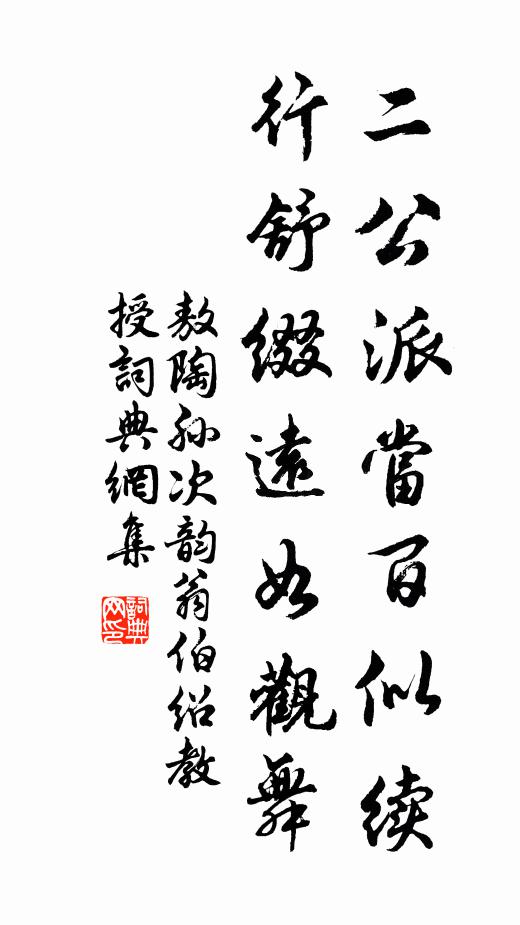 二公派當百似续
行舒綴遠如觀舞
敖陶孙次韵翁伯紹教
授詞典網集
詞典网印